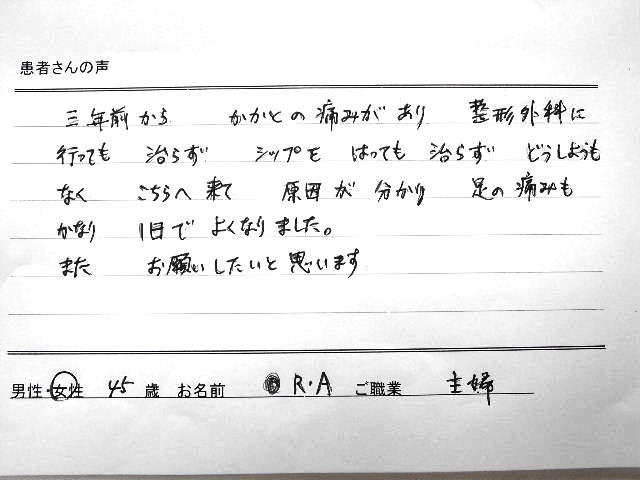 患者さんの声
三年前から かかとの痛みがあり 整形外科に
行っても 治らず シップを はっても 治らず どうしようも
なく こちらへ来て 原因が分かり 足の痛みも
かなり 1日でよくなりました。
また お願いしたいと思います
男性・女性 45歳 お名前 R・A ご職業 主婦